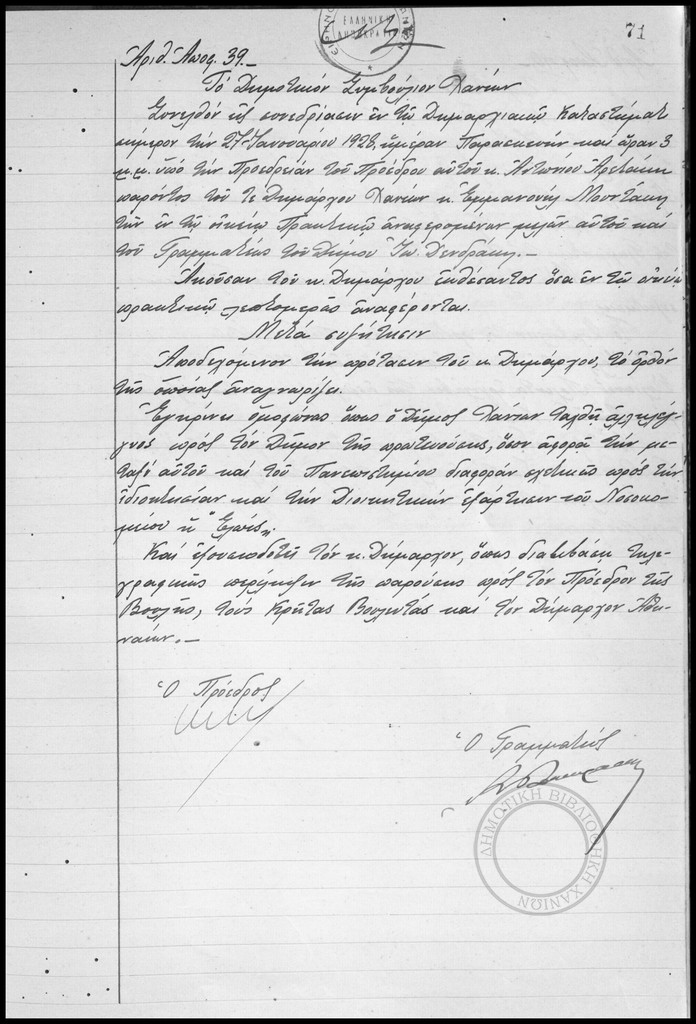 71
ΕΛΛΗΝΙΚΗ
ΔΗΜΟΚΡΑΤΙΑ
Ἀριθ. Ἀποφ. 39.–
Τὸ Δημοτικὸν Συμβούλιον Χανίων
Συνελθὸν εἰς συνεδρίασιν ἐν τῷ Δημαρχιακῷ Καταστήματι
σήμερον τὴν 27 Ἰανουαρίου 1928, ἡμέραν Παρασκευὴν καὶ ὥραν 3
μ.μ. ὑπὸ τὴν Προεδρείαν τοῦ Προέδρου αὐτοῦ κ. Ἀντωνίου
παρόντος τοῦ τε Δημάρχου Χανίων κ. Ἐμμανουὴλ Μουντάκη
τῶν ἐν τῷ οἰκείῳ Πρακτικῷ ἀναφερομένων μελῶν αὐτοῦ καὶ
τοῦ Γραμματέως τοῦ Δήμου Ἰω. Δενδράκη.–
Ἀκούσαν τοῦ κ. Δημάρχου ἐκθέσαντος ὅσα ἐν τῷ οἰκείῳ
πρακτικῷ λεπτομερῶς ἀναφέρονται.
Μετὰ συζήτησιν
Ἀποδεχόμενον τὴν πρότασιν τοῦ κ. Δημάρχου, τὸ ὀρθὸν
τῆς ὁποίας ἀναγνωρίζει.
Ἐγκρίνει ὁμοφώνως ὅπως ὁ Δῆμος Χανίων ταχθῇ ἀλληλέγ-
γυος πρὸς τὸν Δῆμον τῆς πρωτευούσης, ὅσον ἀφορᾷ τὴν με-
ταξὺ αὐτοῦ καὶ τοῦ Πανεπιστημίου διαφορὰν σχετικῶς πρὸς τὴν
ἰδιοκτησίαν καὶ τὴν Διοικητικὴν ἐξάρτησιν τοῦ Νοσοκο-
μείου ἡ "Ἐλπίς„.
Καὶ ἐξουσιοδοτεῖ τὸν κ. Δήμαρχον, ὅπως διαβιβάσῃ τηλε-
γραφικῶς περίληψιν τῆς παρούσης πρὸς τὸν Πρόεδρον τῆς
Βουλῆς, τοὺς Κρῆτας Βουλευτὰς καὶ τὸν Δήμαρχον Ἀθη-
ναίων.–
Ὁ Πρόεδρος
Ὁ Γραμματεὺς
ΔΗΜΟΤΙΚΗ ΒΙΒΛΙΟΘΗΚΗ ΧΑΝΙΩΝ